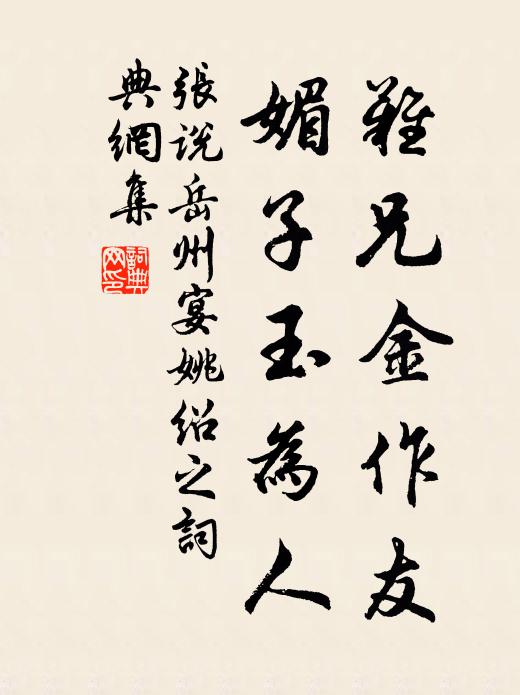 難兄金作友
媚子玉為人
張說岳州宴姚紹之詞
典網集
詞典網印